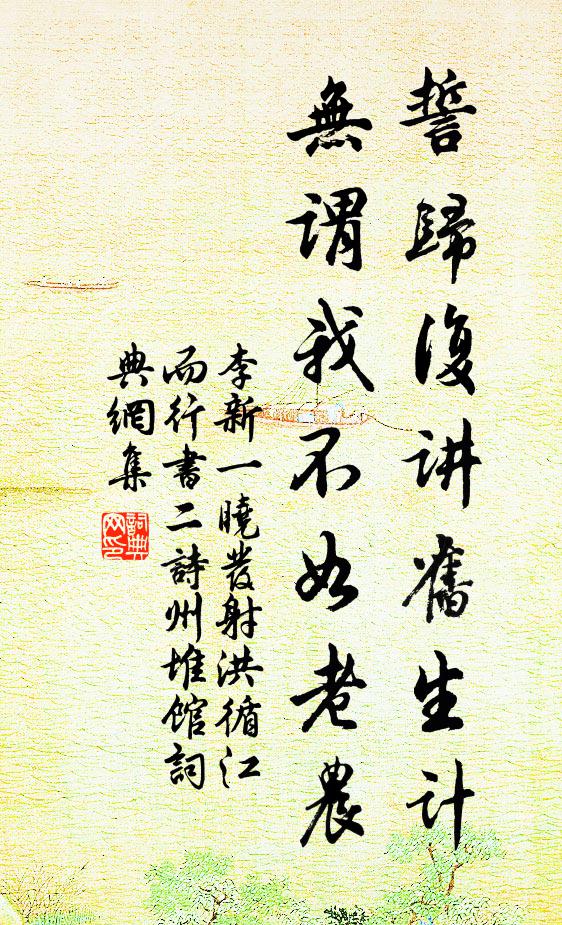 誓歸復讲舊生计
無谓我不如老農
李新一曉發射洪循江
而行書二詩州堆馆詞
典網集
詞典
网印